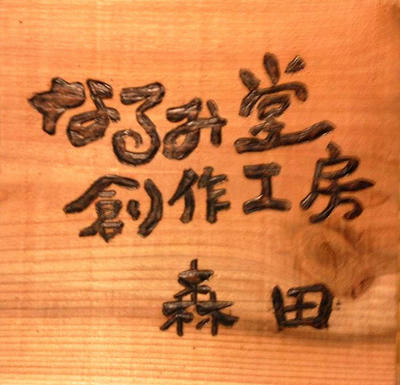 なるみ堂
創作工房
森田